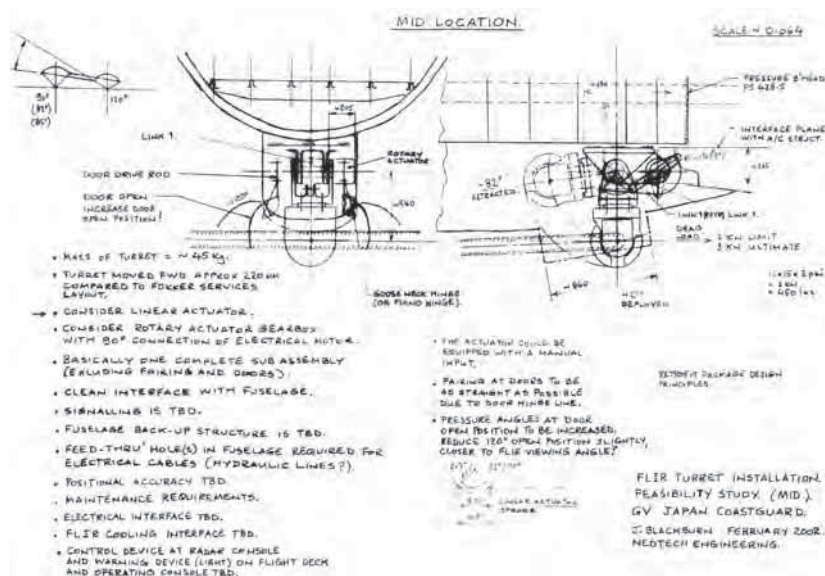 MID LOCATION.
SCALE ~ 0.064
90°
120°
(85°)
LINK 1.
DOOR DRIVE ROD
DOOR OPEN
INCREASE DOOR
OPEN POSITION!
ROTARY
ACTUATOR
PRESSURE B'HEAD
INTERFACE PLANE
WITH A/C STRUCT.
~82°
RETRACTED
LINK 1.
DRAG
LOAD
2 KN LIMIT
3 KN ULTIMATE
DEPLOYED
GOOSE NECK HINGE
(OR PIANO HINGE).
• MASS OF TURRET = ~45 Kg.
• TURRET MOVED FWD APPROX 220 MM
COMPARED TO FOKKER SERVICES
LAYOUT.
→ • CONSIDER LINEAR ACTUATOR.
• CONSIDER ROTARY ACTUATOR GEARBOX
WITH 90° CONNECTION OF ELECTRICAL MOTOR.
• BASICALLY ONE COMPLETE SUB ASSEMBLY
(EXLUDING FAIRING AND DOORS).
• CLEAN INTERFACE WITH FUSELAGE.
• SIGNALLING IS TBD.
• FUSELAGE BACK-UP STRUCTURE IS TBD.
• FEED-THRU' HOLE(S) IN FUSELAGE REQUIRED FOR
ELECTRICAL CABLES (HYDRAULIC LINES?).
• POSITIONAL ACCURACY TBD
• MAINTENANCE REQUIREMENTS.
• ELECTRICAL INTERFACE TBD.
• FLIR COOLING INTERFACE TBD.
• CONTROL DEVICE AT RADAR CONSOLE
AND WARNING DEVICE (LIGHT) ON FLIGHT DECK
AND OPERATING CONSOLE TBD.
• THE ACTUATOR COULD BE
EQUIPPED WITH A MANUAL
INPUT.
• FAIRING AT DOORS TO BE
AS STRAIGHT AS POSSIBLE
DUE TO DOOR HINGE LINE.
• PRESSURE ANGLES AT DOOR
OPEN POSITION TO BE INCREASED.
REDUCE 120° OPEN POSITION SLIGHTLY,
CLOSER TO FLIR VIEWING ANGLE!
LINEAR ACTUATOR
STROKE
RETROFIT PACKAGE DESIGN
PRINCIPLES.
FLIR TURRET INSTALLATION
FEASIBILITY STUDY (MID).
GV JAPAN COASTGUARD.
J. BLACKBURN FEBRUARY 2002.
NEDTECH ENGINEERING.